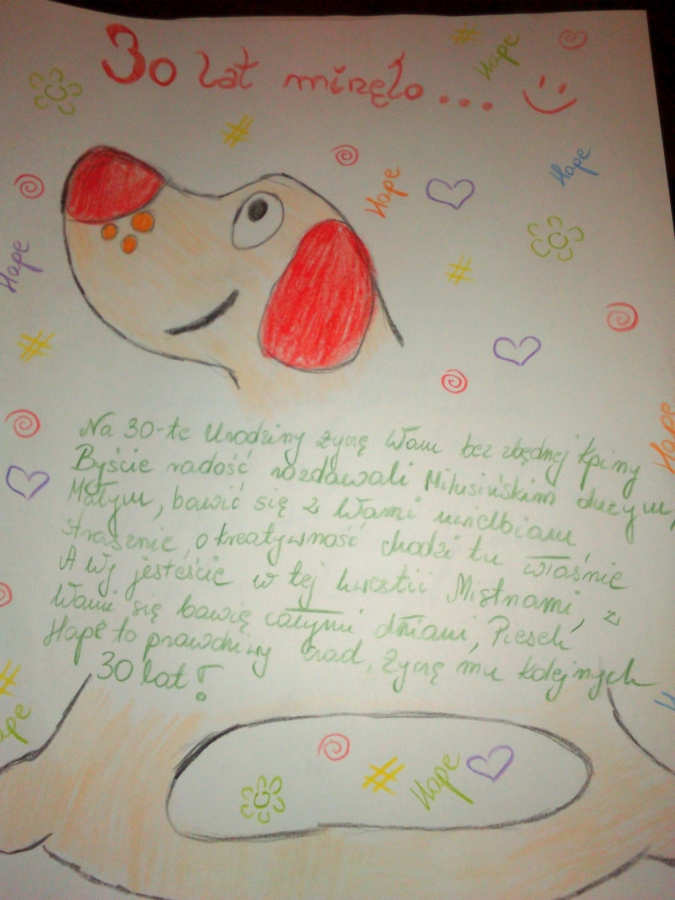 30 lat minęło...
Hape
Hape
Hape
Hape
Hape
Na 30-te Urodziny życzę Wam bez zbędnej kpiny
Byście radość rozdawali Milusińskim dużym,
Małym, bawić się z Wami uwielbiam
strasznie, o kreatywność chodzi tu właśnie
A Wy jesteście w tej kwestii Mistrzami, z
Wami się bawię całymi dniami, Piesek
Hape to prawdziwy czad, życzę mu kolejnych
30 lat!
Hape